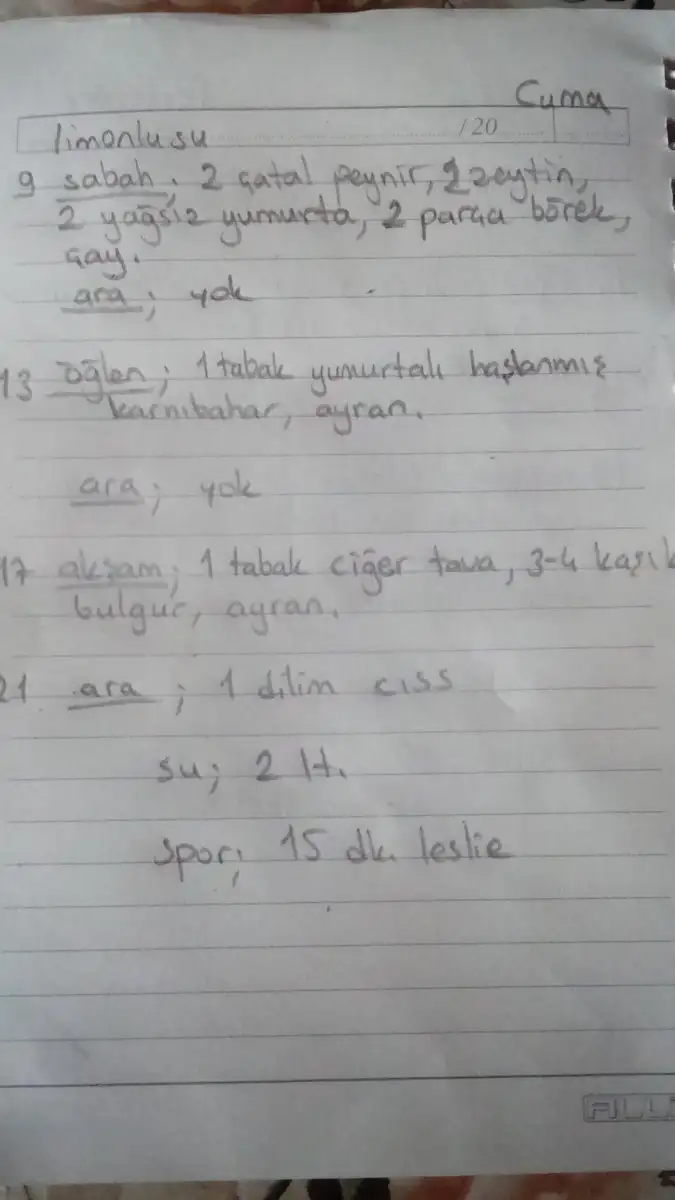 Cuma
limonlu su
/20
9 sabah; 2 çatal peynir, 2 zeytin,
2 yağsız yumurta, 2 parça börek,
çay.
ara; yok
13 öğlen; 1 tabak yumurtalı haşlanmış
karnıbahar, ayran.
ara; yok
17 akşam; 1 tabak ciğer tava, 3-4 kaşık
bulgur, ayran.
21 ara; 1 dilim ciss
su; 2 lt.
spor; 15 dk. leslie